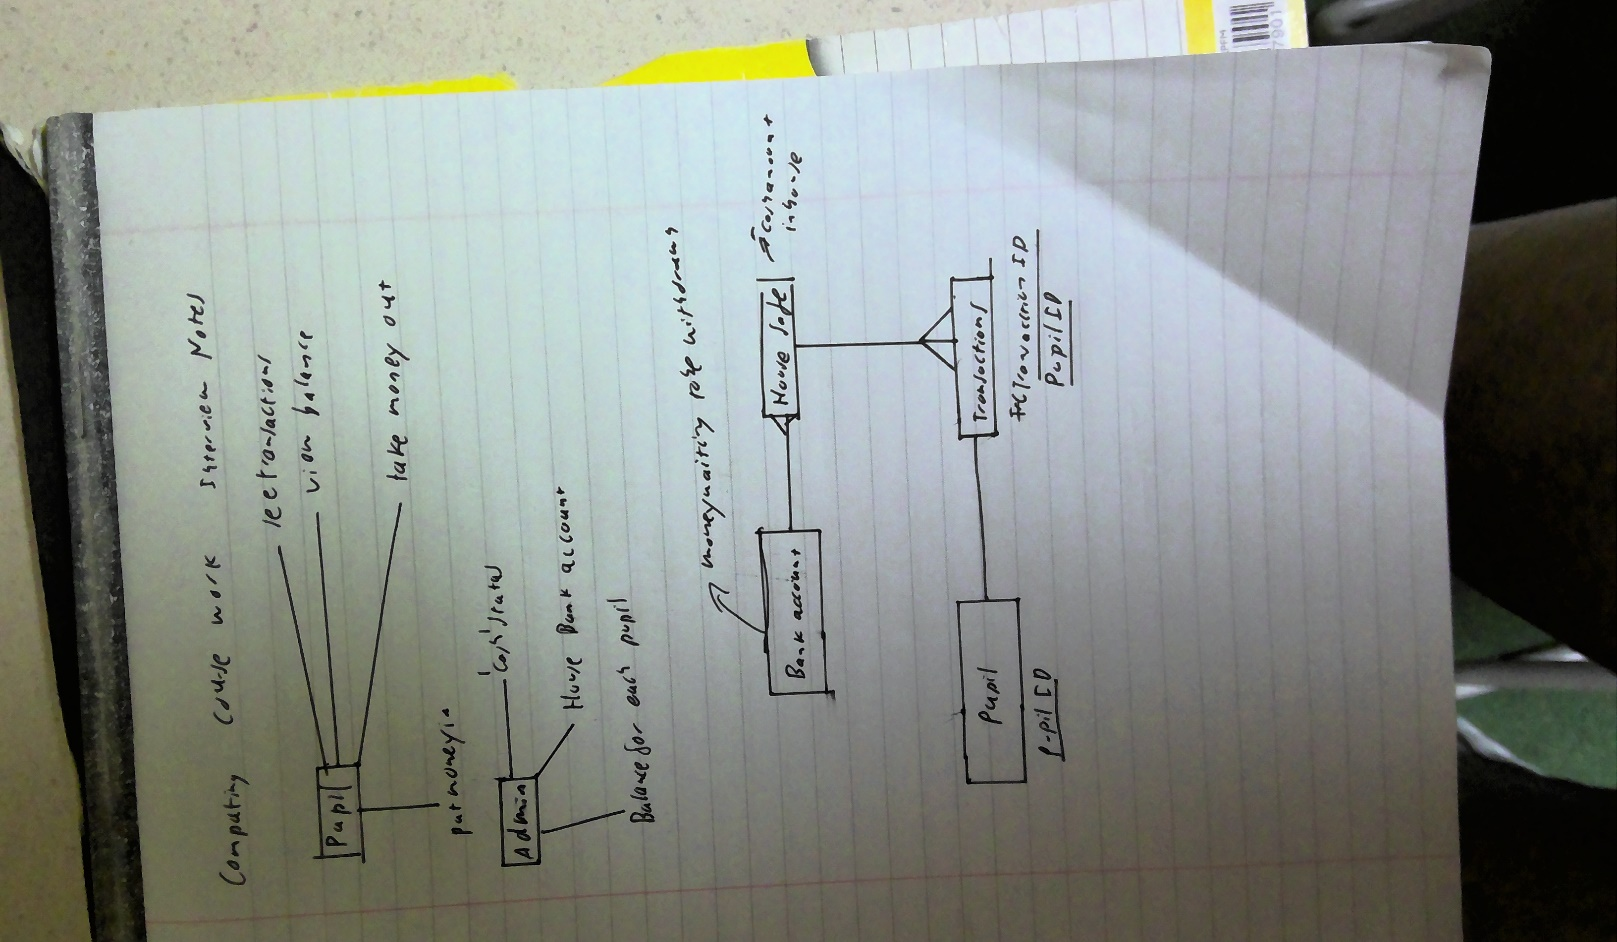 Computing Course work Interview Notes
Pupil
see transactions
view balance
take money out
put money in
Admin
Cash total
House Bank account
Balance for each pupil
money waiting to be withdrawn
Bank account
House safe
Cash amount
in house
Pupil
Pupil ID
Transactions
Transaction ID
Pupil ID